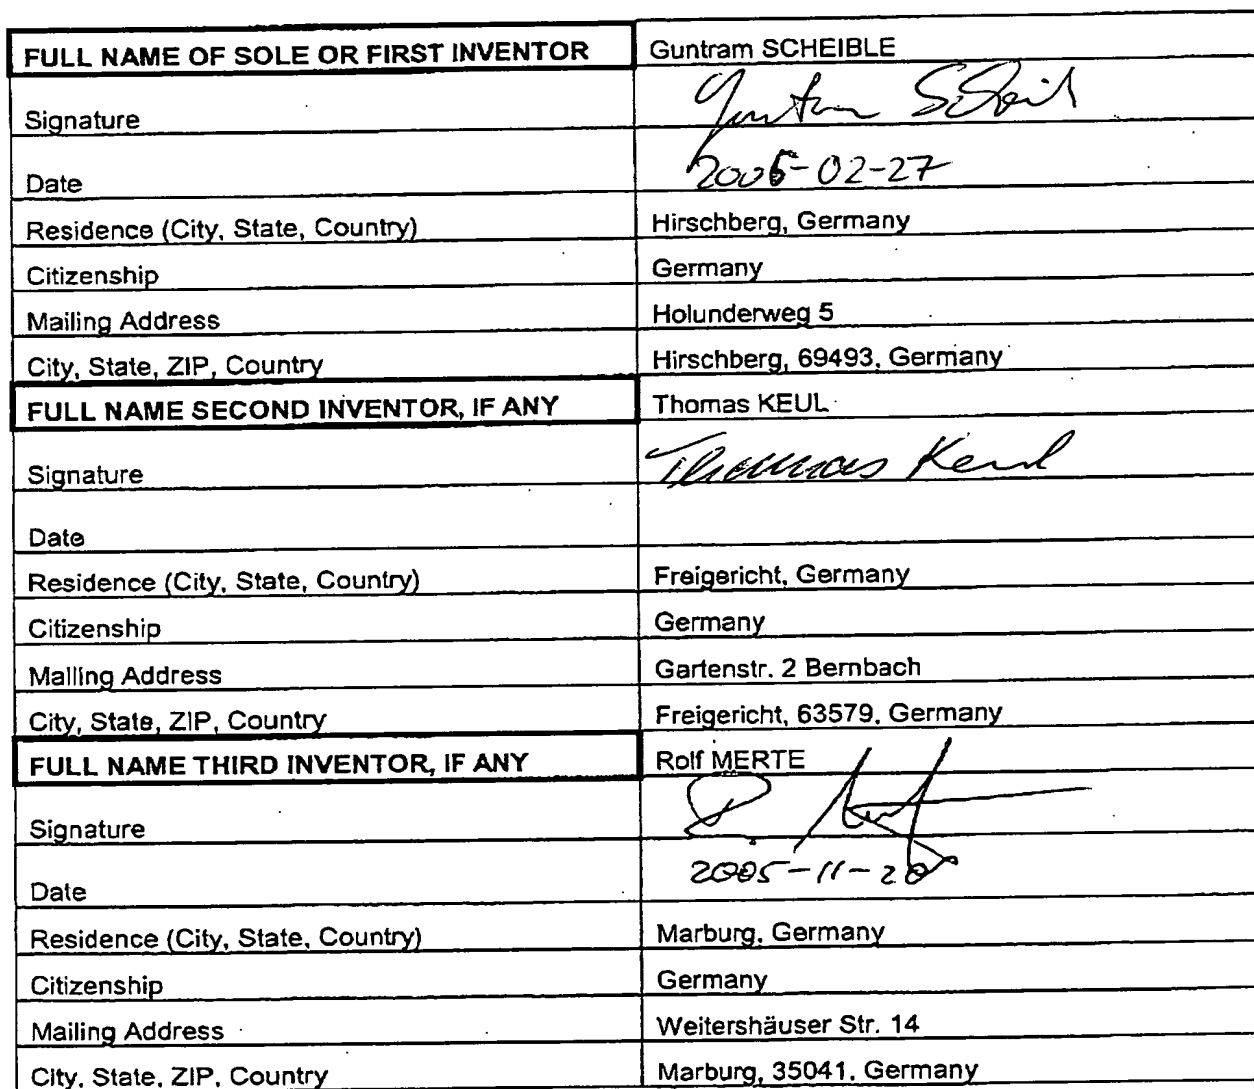 FULL NAME OF SOLE OR FIRST INVENTOR Guntram SCHEIBLE
Signature Guntram Scheible
Date 2006-02-27
Residence (City, State, Country) Hirschberg, Germany
Citizenship Germany
Mailing Address Holunderweg 5
City, State, ZIP, Country Hirschberg, 69493, Germany
FULL NAME SECOND INVENTOR, IF ANY Thomas KEUL
Signature Thomas Keul
Date
Residence (City, State, Country) Freigericht, Germany
Citizenship Germany
Mailing Address Gartenstr. 2 Bernbach
City, State, ZIP, Country Freigericht, 63579, Germany
FULL NAME THIRD INVENTOR, IF ANY Rolf MERTE
Signature
Date 2005-11-20
Residence (City, State, Country) Marburg, Germany
Citizenship Germany
Mailing Address Weitershäuser Str. 14
City, State, ZIP, Country Marburg, 35041, Germany